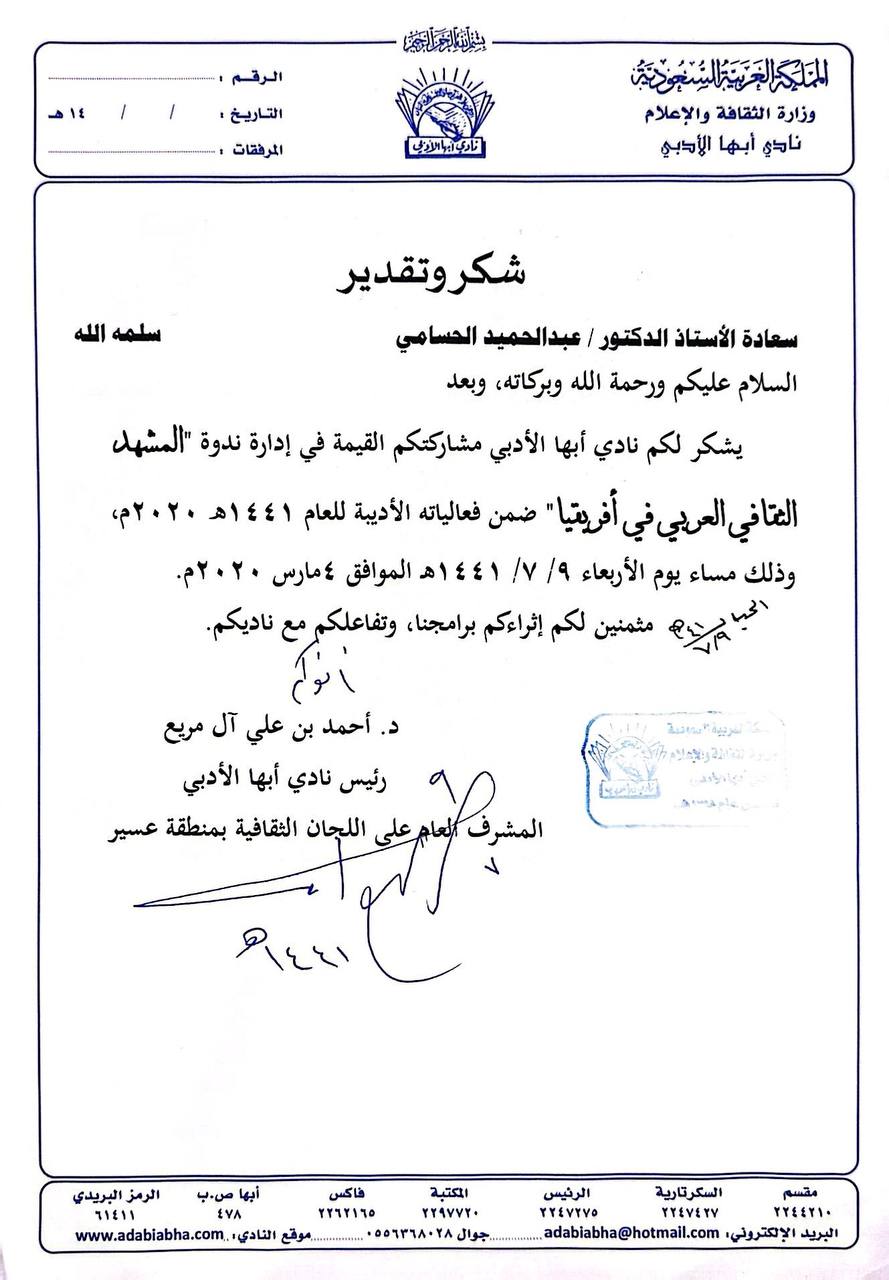 بسم الله الرحمن الرحيم
المملكة العربية السعودية
وزارة الثقافة والإعلام
نادي أبها الأدبي
نادي أبها الأدبي
الرقم :
التاريخ : / / ١٤ هـ
المرفقات :
شكر وتقدير
سعادة الأستاذ الدكتور / عبدالحميد الحسامي سلمه الله
السلام عليكم ورحمة الله وبركاته، وبعد
يشكر لكم نادي أبها الأدبي مشاركتكم القيمة في إدارة ندوة "المشهد
الثقافي العربي في أفريقيا" ضمن فعالياته الأدبية للعام ١٤٤١هـ ٢٠٢٠م،
وذلك مساء يوم الأربعاء ٩/ ٧/ ١٤٤١هـ الموافق ٤مارس ٢٠٢٠م.
مثمنين لكم إثراءكم برامجنا، وتفاعلكم مع ناديكم.
أخوكم
د. أحمد بن علي آل مريع
رئيس نادي أبها الأدبي
المشرف العام على اللجان الثقافية بمنطقة عسير
٩
٧
١٤٤١هـ
وزارة الثقافة والإعلام
مقسم السكرتارية الرئيس المكتبة فاكس أبها ص.ب الرمز البريدي
٢٢٤٤٢١٠ ٢٢٤٧٤٢٧ ٢٢٤٧٢٧٥ ٢٢٩٧٧٢٠ ٢٢٦٢١٦٥ ٤٧٨ ٦١٤١١
البريد الإلكتروني: adabiabha@hotmail.com جوال ٠٥٥٦٣٦٨٠٢٨ موقع النادي: www.adabiabha.com